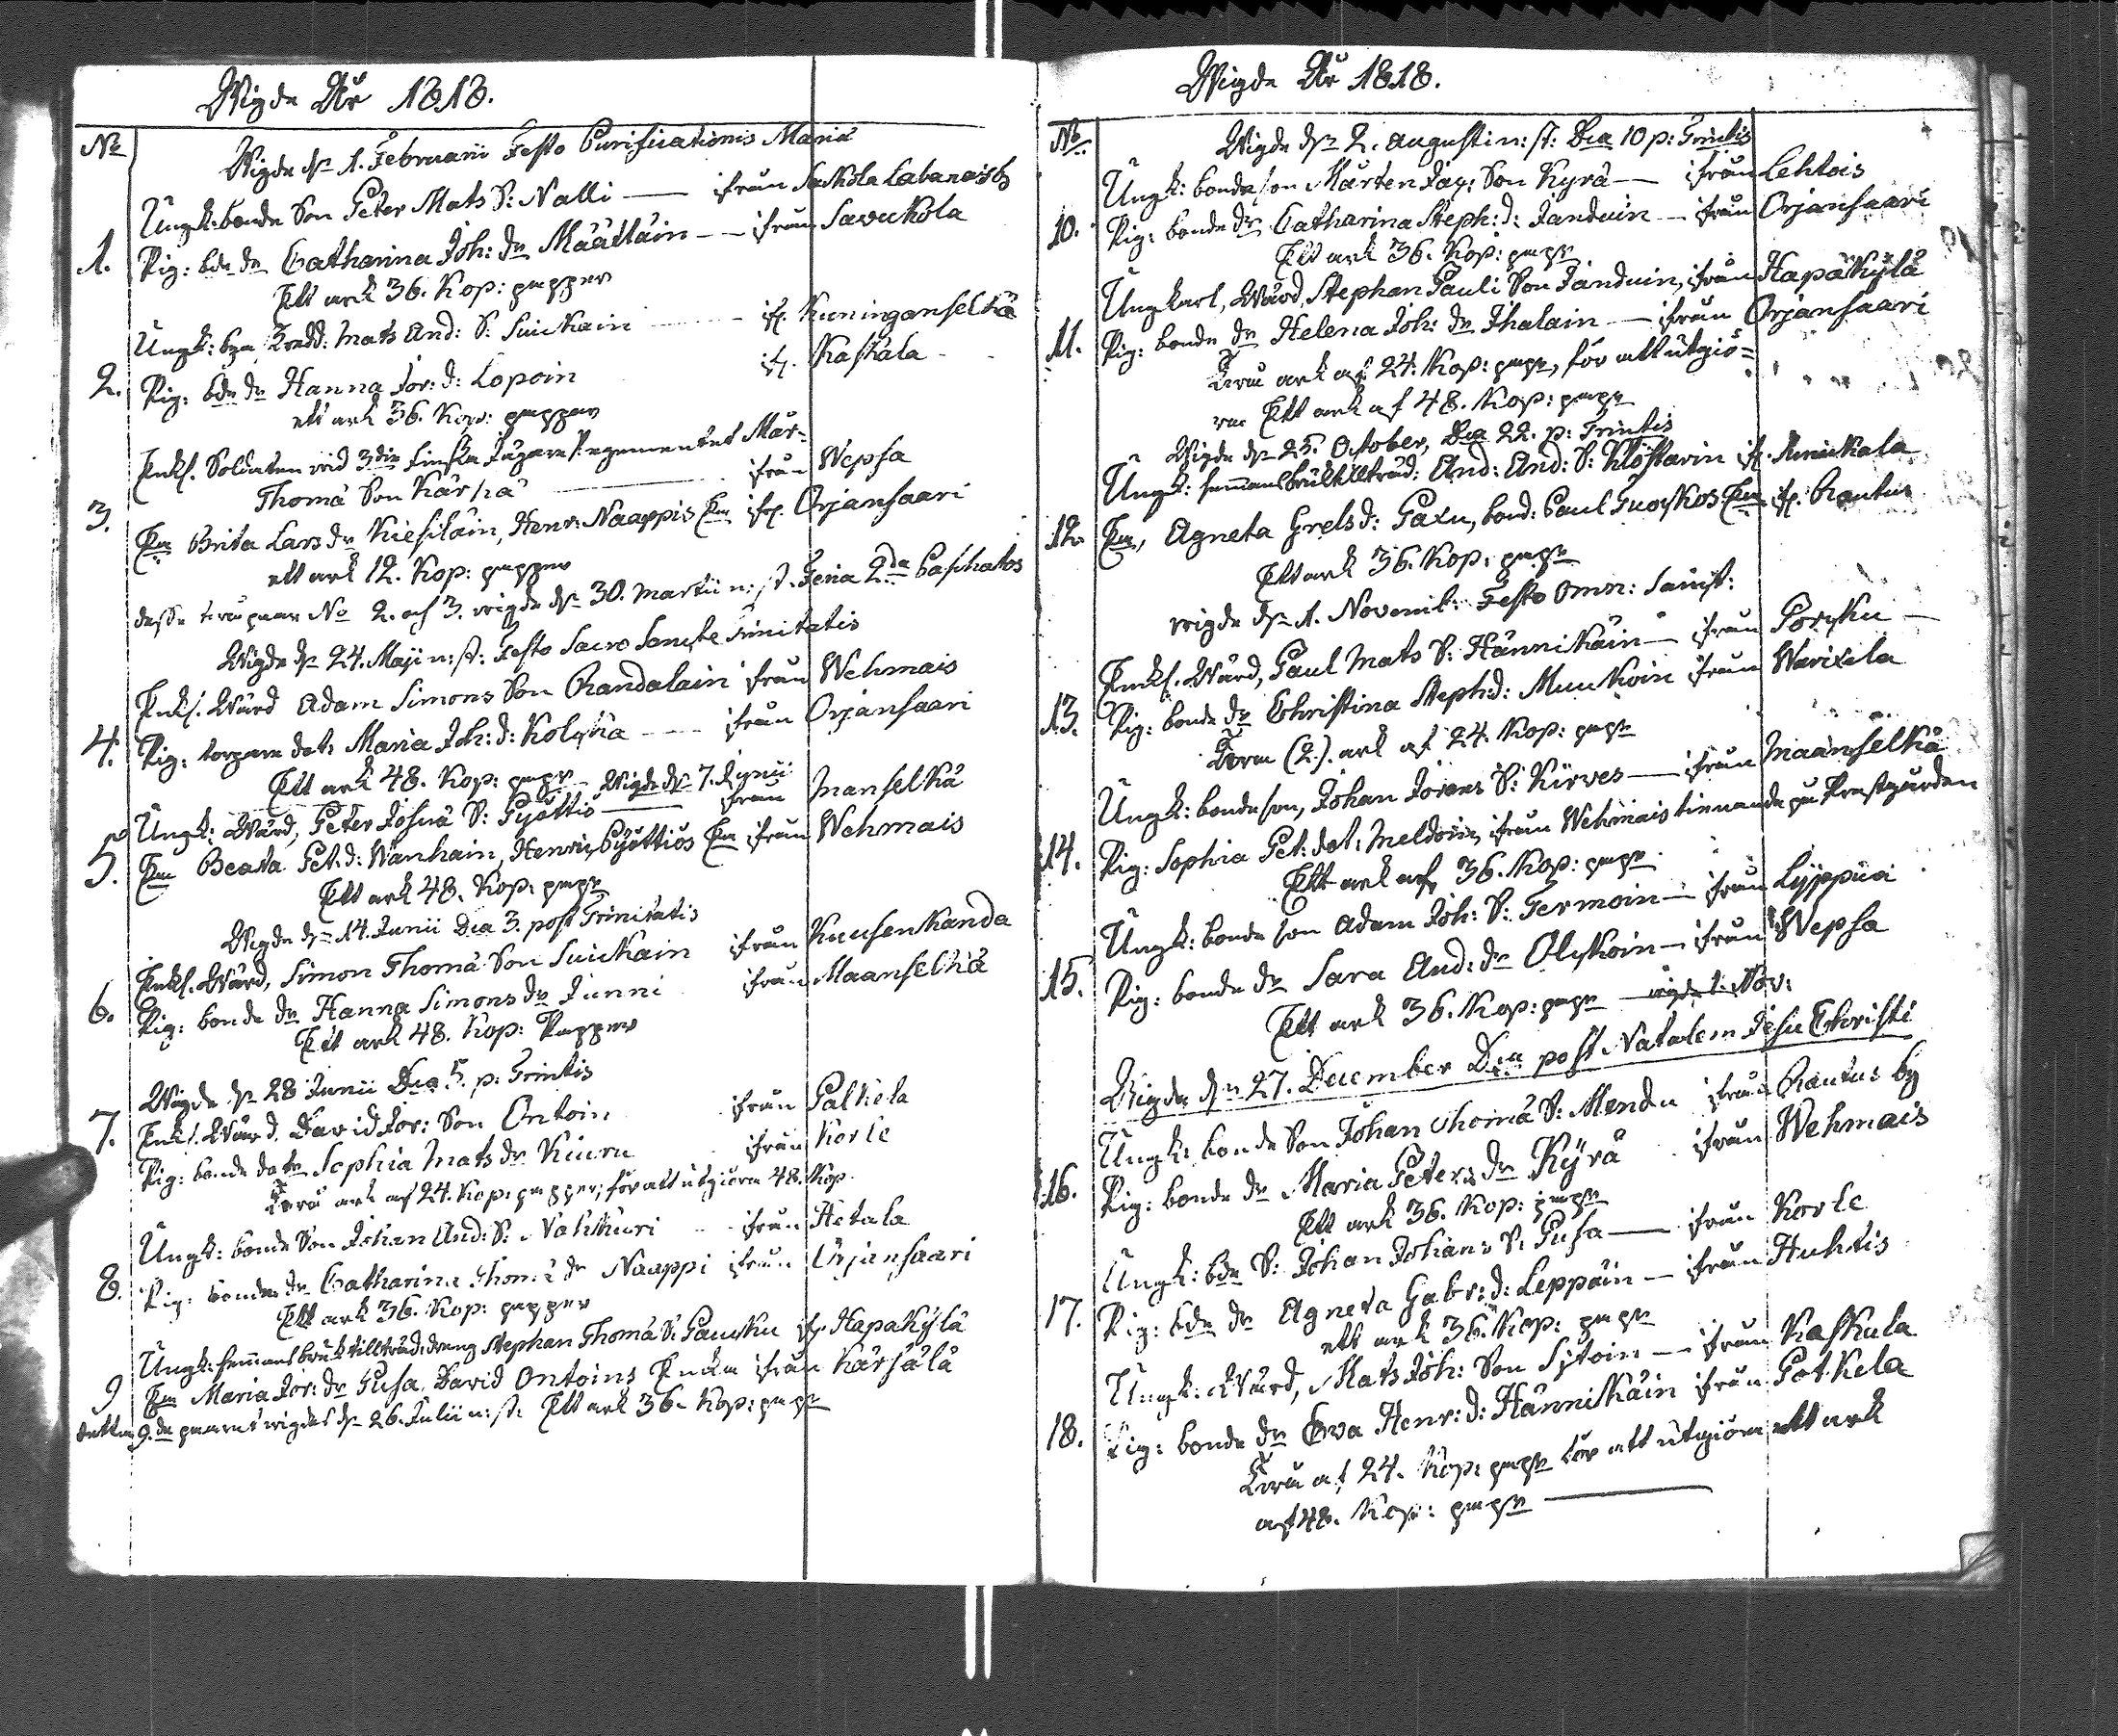 Wigde År 1818.
No
Wigde dn 1. Februarii Festo Purificationis Mariä
Ungk: bonde Son Peter Mats S: Nalli — ifrån Sackola Labanais by
1. Pig: bde dr Catharina Joh: dr Määttäin — ifrån Savukola
Ett ark 36. Kop: papper
Ungk: Mats And: S: Suikain — ifr. Kuninganselkä
2. Pig: bde dr Hanna Jör: d: Lopoin ifr. Kaskala
ett ark 36. Kop: papper
Enkl. Soldaten vid 3die Finska Jägare Regementet Mår-
Thomä Son Kärpä — ifrån Wepsa
3. Enk Brita Lars dr Kiesiläin, Henr: Naappis Enk ifr. Orjansaari
ett ark 12. Kop: papper
desse tvu paar No 2. och 3. wigde dn 30. Martii n: st. Feria 2da Paschatos
Wigde dn 24. Maji n: st: Festo Sacro Sancte Trinitatis
Enkl. Wärd Adam Simons Son Randalain ifrån Wehmais
4. Pig: torpare dot: Maria Joh: d: Kolcka — ifrån Orjansaari
Ett ark 48. Kop: pappr Wigde dn 7. Junii
Ungk: Wärd, Peter Josuä S: Pyöttiö — ifrån Manselkä
5. Enk Beata Pet: d: Wanhain, Henric Pyöttiös Enk ifrån Wehmais
Ett ark 48. Kop: pappr
Wigde dn 14. Junii Dca 3. post Trinitatis
Enkl. Wärd, Simon Thomä Son Suikain ifrån Kuusenkanda
6. Pig: bonde dr Hanna Simons dr Junni ifrån Maanselkä
Ett ark 48. Kop: Papper
Wigde dn 28 Junii Dca 5. p: Trintis
7. Enkl. Wärd. David Jör: Son Ontoin ifrån Palkela
Pig: bonde dotr Sophia Mats dr Kiuru ifrån Korle
Tvåu ark af 24. Kop: papper, för att utgiöra 48. Kop.
Ungk: bonde Son Johan And: S: Nahkuri ifrån Hetala
8. Pig: bonde dr Catharina Thomä dr Naappi ifrån Orjansaari
Ett ark 36. Kop: papper
Ungk: hemmansbruk tillträd: dreng Stephan Thomä S: Paucku ifr. Hapakylä
9 Enk Maria Jör: dr Pusa, David Ontoins Enka ifrån Kärsälä
detta 9.de paaret wigdes dn 26. Julii n: st. Ett ark 36. Kop: pappr
Wigde År 1818.
No
Wigde dn 2. Augusti n: st: Dca 10 p: Trintis
Ungk: bonde son Mårten Jac: Son Kyrä — ifrån Lehtois
10. Pig: bonde dr Catharina Steph: d: Janduin — ifrån Orjansaari
Ett ark 36. Kop: pappr
Ungkarl, Wärd, Stephan Pauli Son Janduin, ifrån Hapakylä
11. Pig: bonde dr Helena Joh: dr Ihalain — ifrån Orjansaari
Tvåu ark af 24. Kop: pappr, för att utgiö=
ra Ett ark af 48. Kop: pappr
Wigde dn 25. October, Dca 22. p: Trintis
Ungk: hemmansbruk tillträd: And: And: S: Klostarin ifr. Raukala
12. Enk, Agneta Grels d: Paxu, bond: Paul Enk ifr. Rautus
Ett ark 36. Kop: pappr
wigde dn 1. Novemb: Festo Omn: Sanct:
Enkl. Wärd, Paul Mats S: Hännikäin — ifrån Porcku —
13. Pig: bonde dr Christina Steph: d: Muukoin ifrån Warixela
Tvåu (2.) ark af 24. Kop: pappr
Ungk: bondeson, Johan Jörens S: Kirves — ifrån Maanselkä
14. Pig: Sophia Pet: dot: Meldoin, ifrån Wehmais tienande på Prestgården
Ett ark af 36. Kop: pappr
Ungk: bonde son Adam Joh: S: Termoin — ifrån Lyjppiia
15. Pig: bonde dr Sara And: dr Olckoin — ifrån Wepsa
Ett ark 36. Kop: pappr — wigde 1. Nov:
Wigde dn 27. December Dca post Natalem Jesu Christi
Ungk: bonde Son Johan Thomä S: Mendu ifrån Rautus by
16. Pig: bonde dr Maria Peters dr Kyrä ifrån Wehmais
Ett ark 36. Kop: pappr
Ungk: bde S: Johan Johans S: Pusa — ifrån Korle
17. Pig: bde dr Agneta Gabr: d: Leppäin — ifrån Huhtis
ett ark 36. Kop: pappr
Ungk: Wärd, Mats Joh: Son Sjtoin — ifrån Kaskala
18. Pig: bonde dr Ewa Henr: d: Hännikäin ifrån Potkela
Tvåu af 24. Kop: pappr för att utgiöra ett ark
af 48. Kop: pappr —